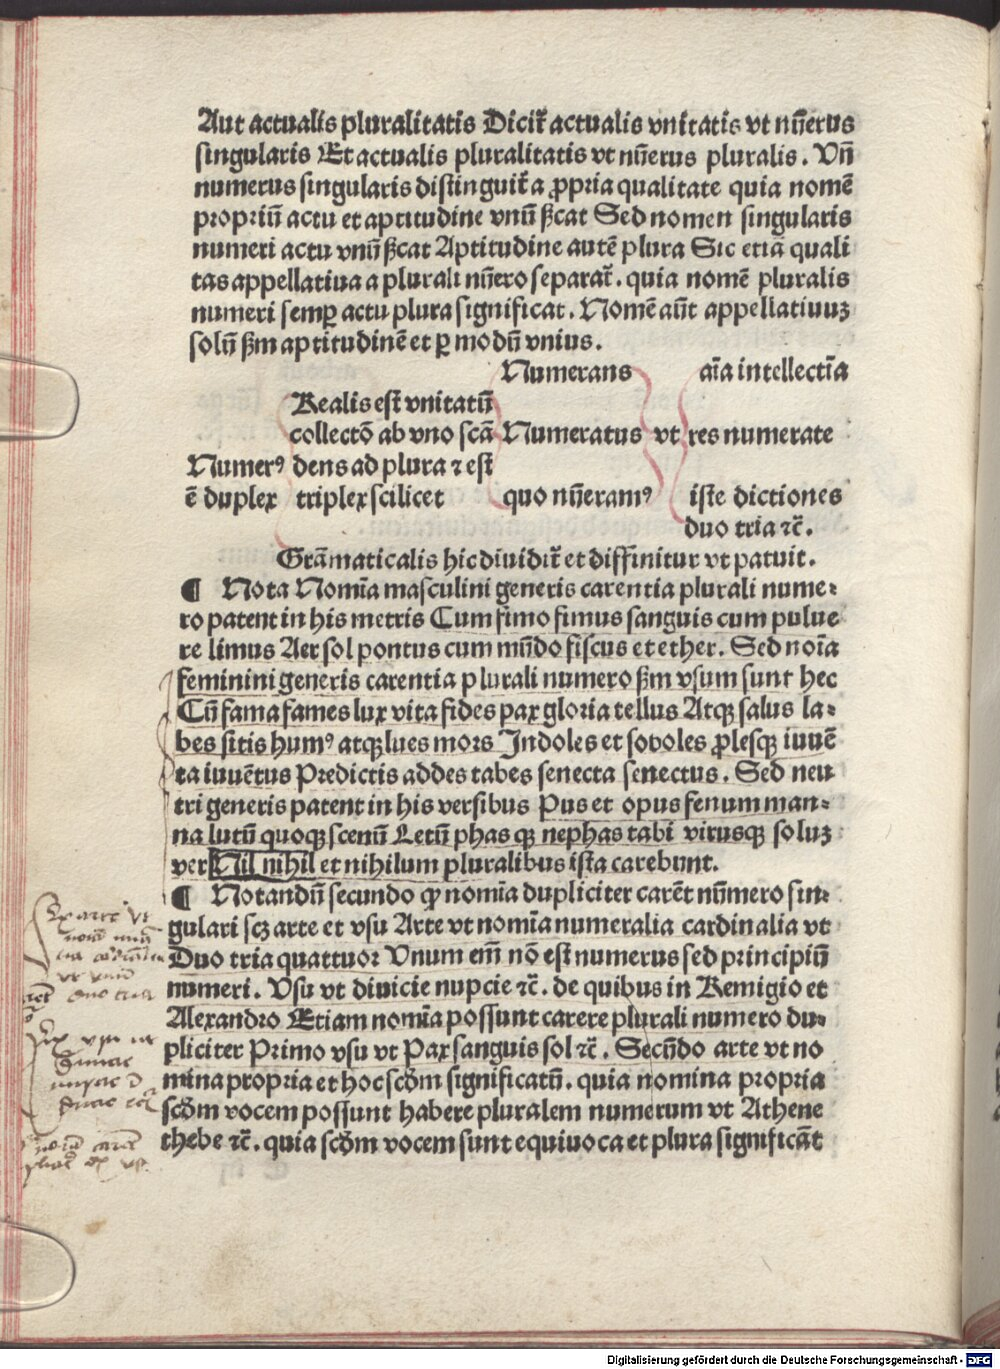 Aut actualis pluralitatis Dicit᷑ actualis vnitatis vt nūerus
singularis Et actualis pluralitatis vt nūerus pluralis. Vn̄
numerus singularis distinguit᷑ a ꝓpria qualitate quia nomē
propriū actu et aptitudine vnū ßcat Sed nomen singularis
numeri actu vnū ßcat Aptitudine autē plura Sic etiā quali
tas appellatiua a plurali nūero separat᷑. quia nomē pluralis
numeri semꝑ actu plura significat. Nomē aūt appellatiuuꝫ
solū ßm aptitudinē et ꝑ modū vnius.
Numerans aīa intellectīa
Realis est vnitatū
collectō ab vno scā Numeratus vt res numerate
Numerꝰ dens ad plura ⁊ est
ē duplex triplex scilicet quo nūeramꝰ iste dictiones
duo tria ⁊c̄.
Grāmaticalis hic diuidit᷑ et diffinitur vt patuit.
¶ Nota Nomīa masculini generis carentia plurali nume⸗
ro patent in his metris Cum fimo fimus sanguis cum pulue
re limus Aer sol pontus cum mūdo fiscus et ether. Sed noīa
feminini generis carentia plurali numero ßm vsum sunt hec
Cū fama fames lux vita fides pax gloria tellus Atqꝫ salus la⸗
bes sitis humꝰ atqꝫ lues mors Indoles et soboles ꝓlesqꝫ iuuē
ta iuuētus Predictis addes tabes senecta senectus. Sed neu
tri generis patent in his versibus Pus et opus fenum man⸗
na lutū quoqꝫ scenū Letū phas qꝫ nephas tabi virusqꝫ soluꝫ
ver Nil nihil et nihilum pluralibus ista carebunt.
¶ Notandū secundo ꝙ nomīa dupliciter carēt nūmero sin⸗
gulari scꝫ arte et vsu Arte vt nomīa numeralia cardinalia vt
Duo tria quattuor Vnum em̄ nō est numerus sed principiū
numeri. Vsu vt diuicie nupcie ⁊c̄. de quibus in Remigio et
Alexandro Etiam nomīa possunt carere plurali numero du⸗
pliciter Primo vsu vt Pax sanguis sol ⁊c̄. Secūdo arte vt no
mina propria et hoc scd̄m significatū. quia nomina propria
scd̄m vocem possunt habere pluralem numerum vt Athene
thebe ⁊c̄. quia scd̄m vocem sunt equiuoca et plura significāt
Digitalisierung gefördert durch die Deutsche Forschungsgemeinschaft - DFG